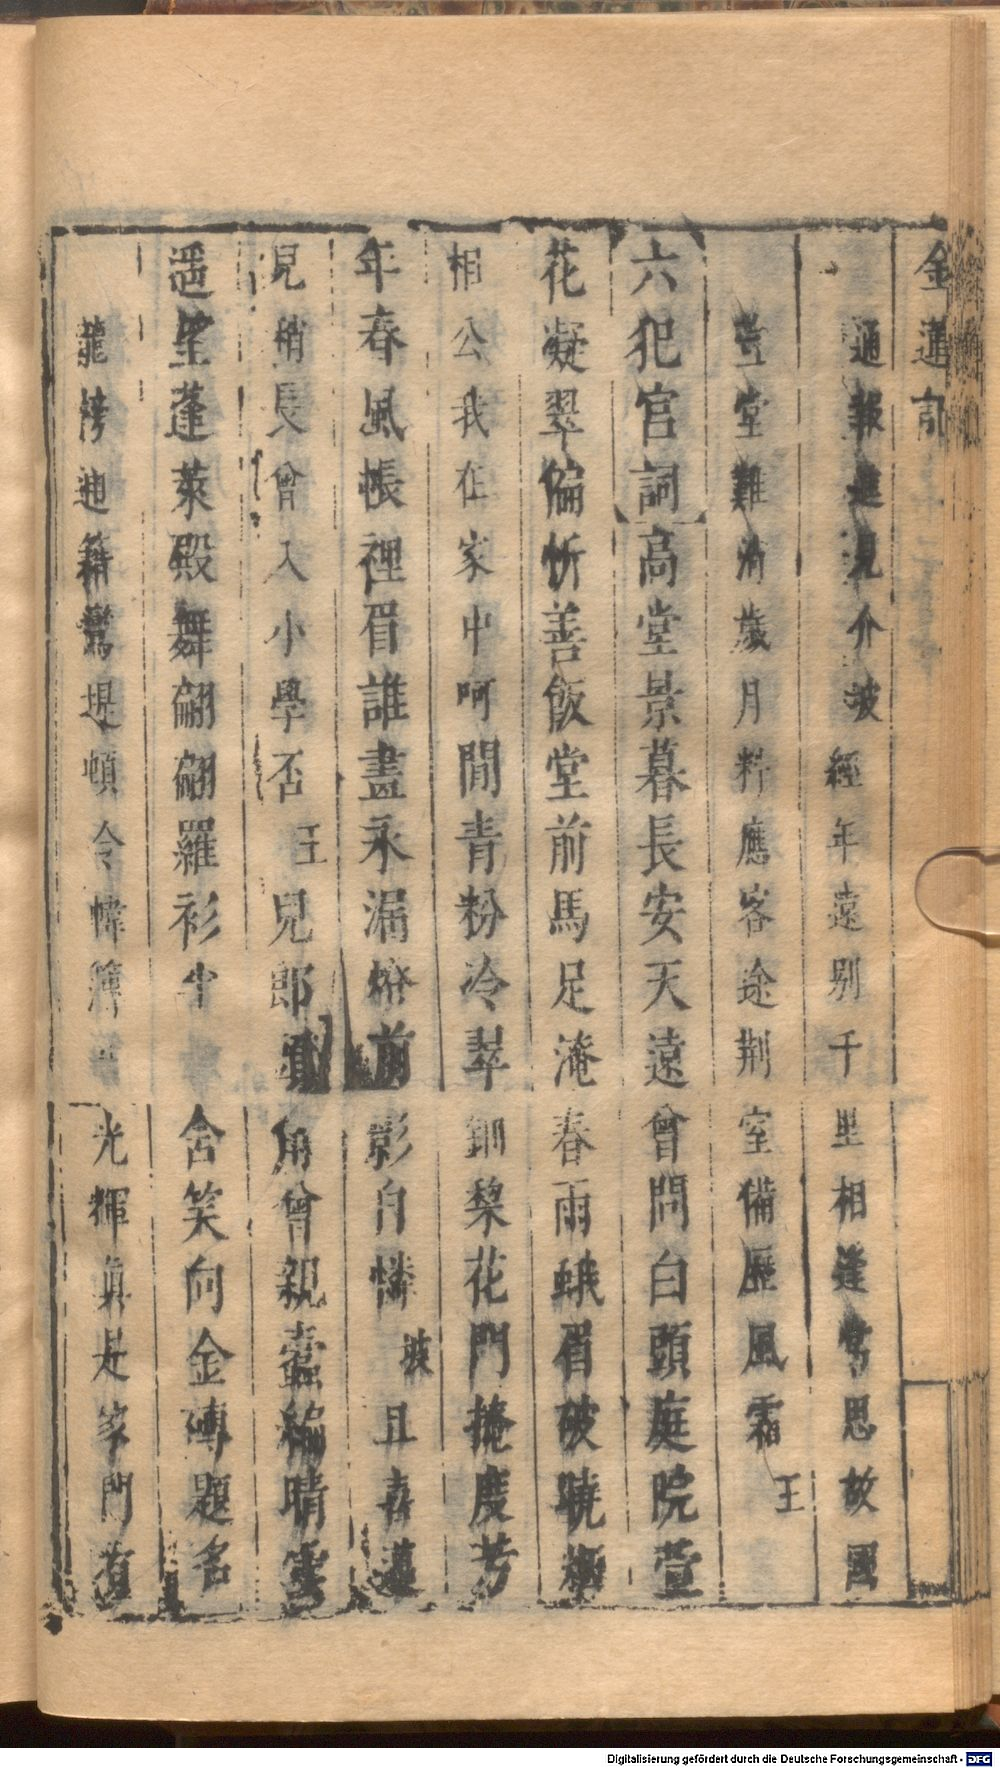 金蓮記
通報進見介波 經年遠別千里相逢兮思故國
萱堂難消歲月料應客途荆室備歷風霜 王
六犯宮詞高堂景暮長安天遠曾問白頭庭院萱
花凝翠偏忻善飯堂前馬足淹春雨蛾眉破曉
相公我在家中呵閒青粉冷翠鈿梨花門掩度芳
年春風帳裡眉誰畫永漏燈前影自憐 波 且喜邁
兒稍長曾入小學否 王 兒郎 角曾親蠹編晴雪
遙望蓬萊殿舞翩翩羅衫 舍笑向金磚題名
龍榜 籍 堤頓令幃簿 光輝真是家門有
Digitalisierung gefördert durch die Deutsche Forschungsgemeinschaft - DFG